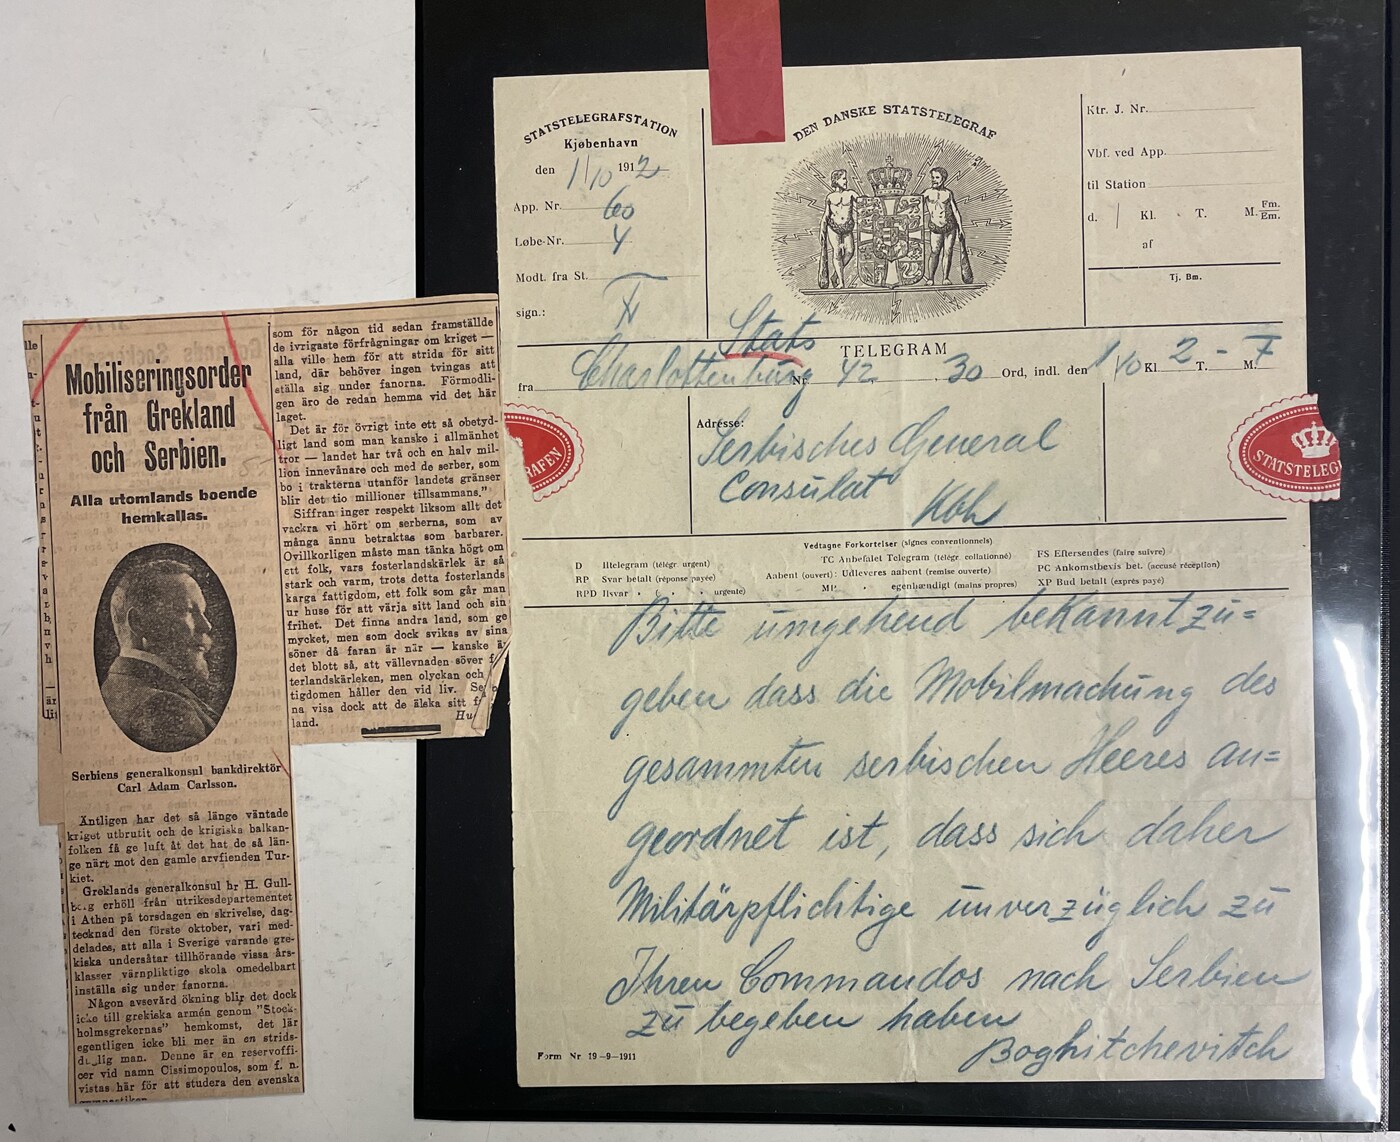 Mobiliseringsorder
från Grekland
och Serbien.
Alla utomlands boende
hemkallas.
Serbiens generalkonsul bankdirektör
Carl Adam Carlsson.
Äntligen har det så länge väntade
kriget utbrutit och de krigiska balkan-
folken få ge luft åt det hat de så län-
ge närt mot den gamle arvfienden Tur-
kiet.
Greklands generalkonsul hr H. Gull-
berg erhöll från utrikesdepartementet
i Athén på torsdagen en skrivelse, dag-
tecknad den förste oktober, vari med-
delades, att alla i Sverige varande gre-
kiska undersåtar tillhörande vissa års-
klasser värnpliktige skola omedelbart
inställa sig under fanorna.
Någon avsevärd ökning blir det dock
icke till grekiska armén genom "Stock-
holmsgrekernas" hemkomst, det lär
egentligen icke bli mer än en strids-
duglig man. Denne är en reservoffi-
cer vid namn Cissimopoulos, som f. n.
vistas här för att studera den svenska
som för någon tid sedan framställde
de ivrigaste förfrågningar om kriget —
alla ville hem för att strida för sitt
land, där behöver ingen tvingas att
ställa sig under fanorna. Förmodli-
gen äro de redan hemma vid det här
laget.
Det är för övrigt inte ett så obetyd-
ligt land som man kanske i allmänhet
tror — landet har två och en halv mil-
lion innevånare och med de serber, som
bo i trakterna utanför landets gränser
blir det tio millioner tillsammans."
Siffran inger respekt liksom allt det
vackra vi hört om serberna, som av
många ännu betraktas som barbarer.
Ovillkorligen måste man tänka högt om
ett folk, vars fosterlandskärlek är så
stark och varm, trots detta fosterlands
karga fattigdom, ett folk som går man
ur huse för att värja sitt land och sin
frihet. Det finns andra land, som ge
mycket, men som dock svikas av sina
söner då faran är när — kanske är
det blott så, att vällevnaden söver
terlandskärleken, men olyckan och
tigdomen håller den vid liv.
na visa dock att de älska sitt
land.
STATSTELEGRAFSTATION
Kjøbenhavn
den 1/10 1912
App. Nr. 60
Løbe-Nr. 4
Modt. fra St.
sign.:
DEN DANSKE STATSTELEGRAF
Ktr. J. Nr.
Vbf. ved App.
til Station
d. Kl. T. M. Fm.
Em.
af
Tj. Bm.
Stats
TELEGRAM
fra Charlottenburg Nr. 42 30 Ord, indl. den 1/10 Kl. 2 - T. 7 M.
Adresse:
Serbisches General
Consulat
Kbh
RAFEN
STATSTELEG
Vedtagne Forkortelser (signes conventionnels)
D Iltelegram (télégr. urgent)
RP Svar betalt (réponse payée)
RPD Ilsvar " ( " " urgente)
TC Anbefalet Telegram (télégr. collationné)
Aabent (ouvert): Udleveres aabent (remise ouverte)
MP " egenhændigt (mains propres)
FS Eftersendes (faire suivre)
PC Ankomstbevis bet. (accusé réception)
XP Bud betalt (exprès payé)
Bitte umgehend bekanntzu=
geben dass die Mobilmachung des
gesammten serbischen Heeres an=
geordnet ist, dass sich daher
Militärpflichtige unverzüglich zu
Ihren Commandos nach Serbien
zu begeben haben
Boghitchevitch
Form Nr. 19—9—1911